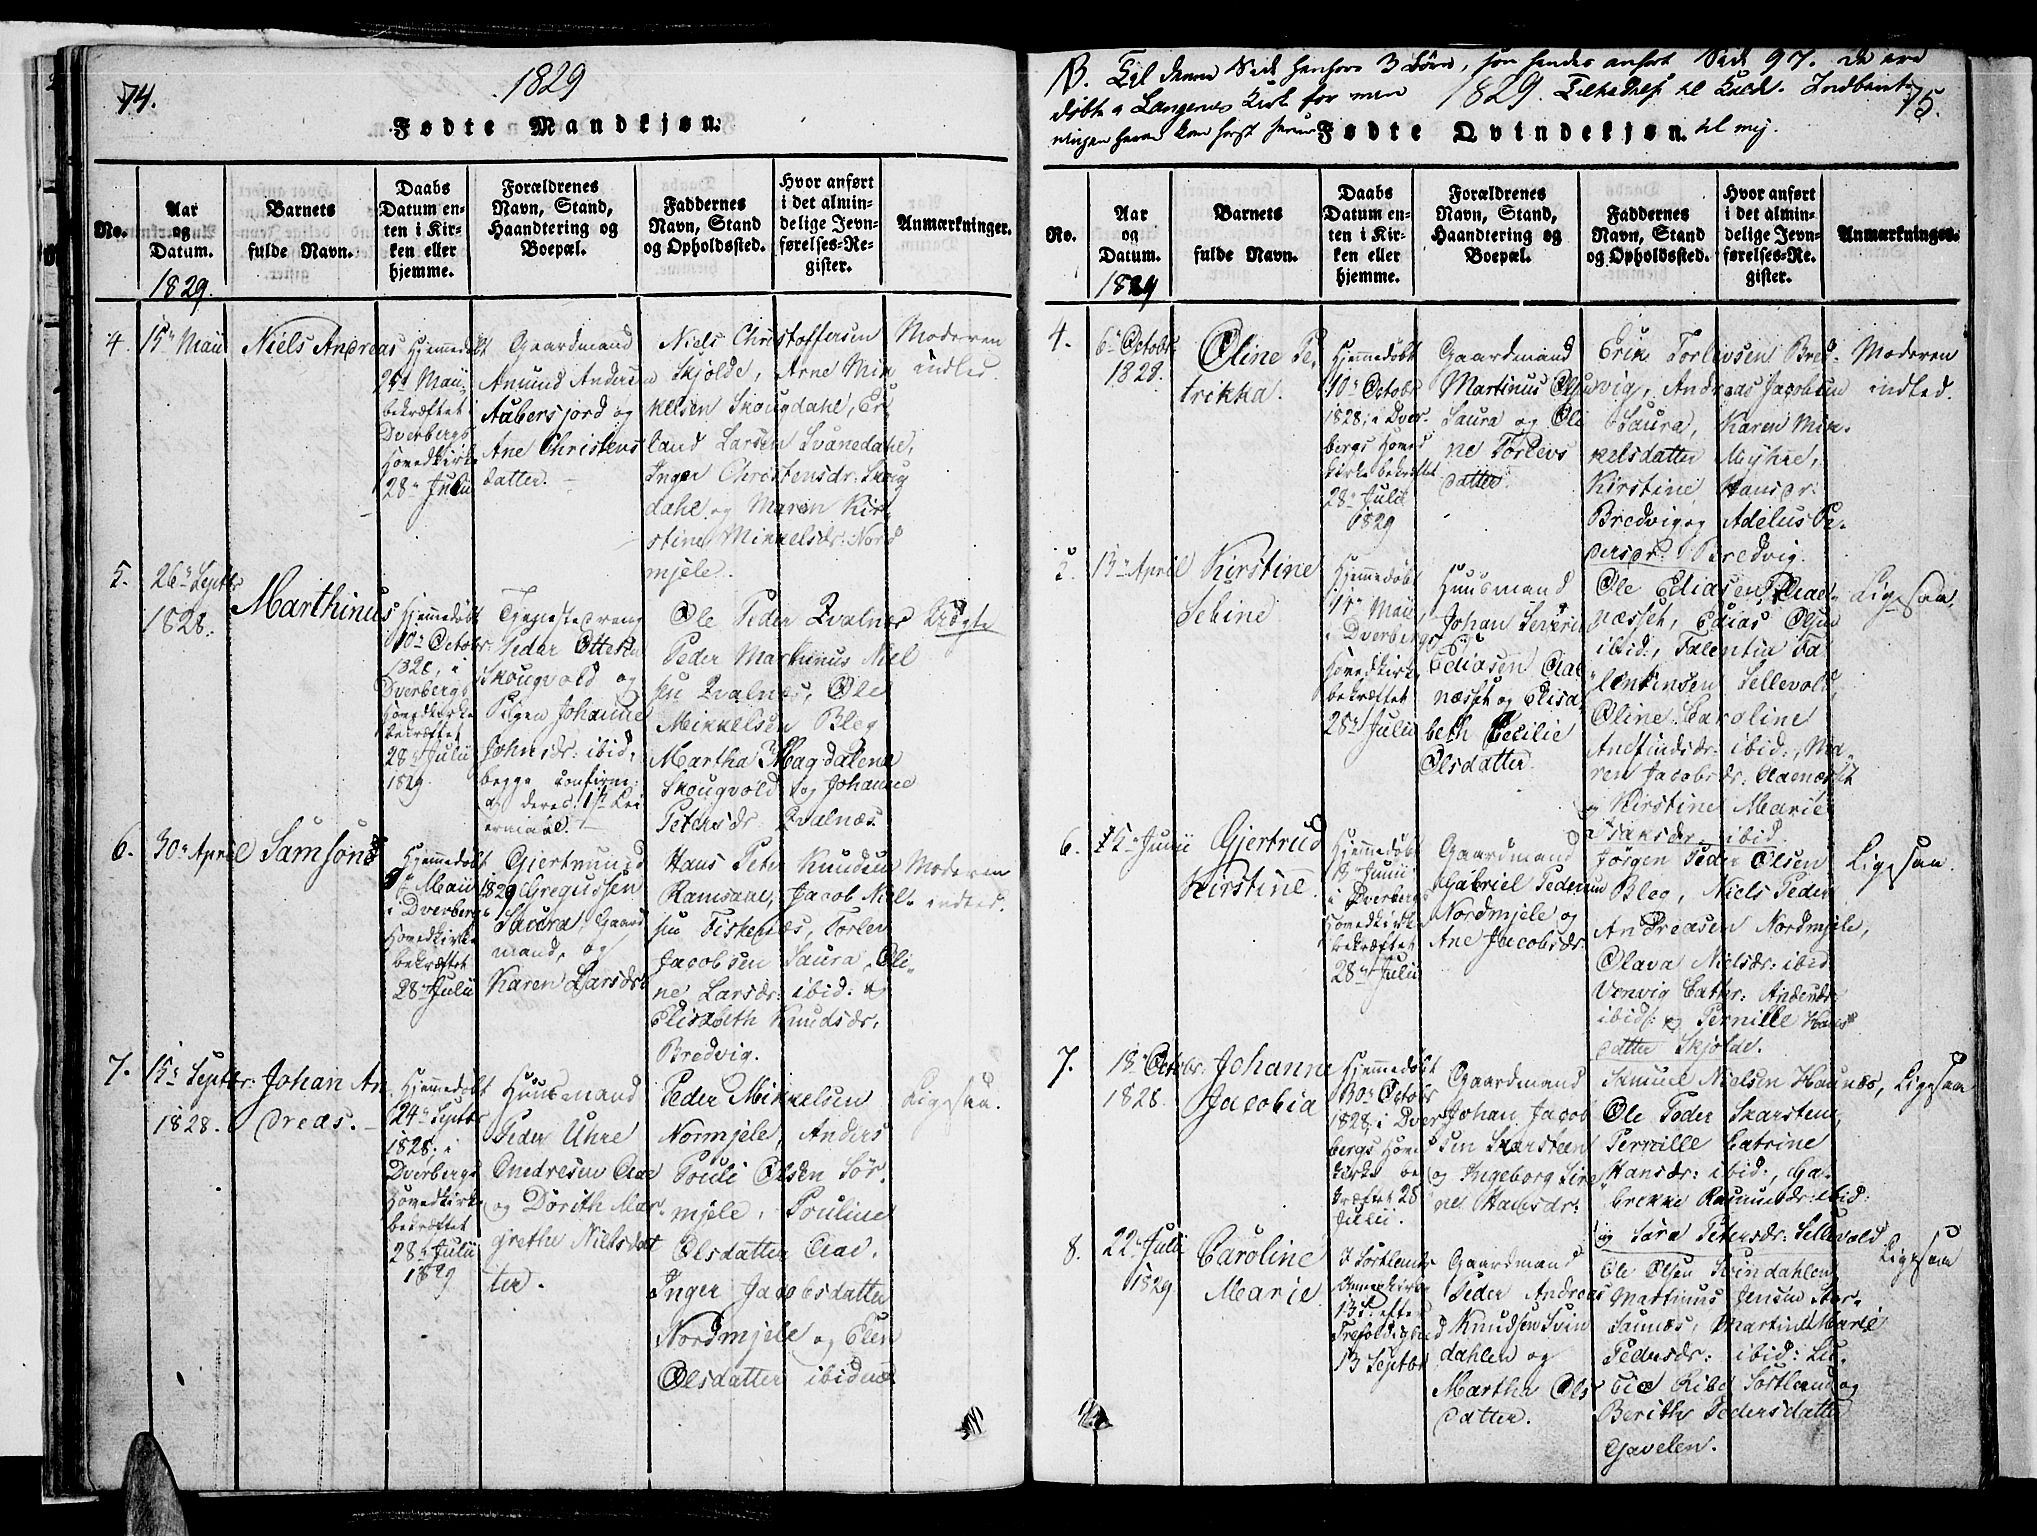 74.
1829
Fødte Mandkjøn.
No.
Aar
og
Datum.
1829.
Barnets
fulde Navn.
Daabs
Datum en-
ten i Kir-
ken eller
hjemme.
Forældrenes
Navn, Stand,
Haandtering og
Boepæl.
Faddernes
Navn, Stand
og Opholdssted.
Hvor anført
i det almin-
delige Jevn-
førelses-Re-
gister.
Anmærkninger.
4.
15de Maii
Niels Andreas
Hjemmedøbt
Maii,
bekræftet i
Dverbergs
Hovedkirke
28de Julii
Gaardmand
Amund Andersen
Aabersjord og
Ane Christens
datter.
Niels Christoffersen
Skjolde, Arne Mik
kelsen Skougdahl, Er
land Larsen Svanedahl,
Inger Christensdr: Skoug
dahl og Maren Kir
stine Mikkelsdr: Nord
mjele.
Moderen
indled.
5.
26de Septbr
1828.
Marthinus
Hjemmedøbt
10de Octobr
1828, i
Dverbergs
Hovedkirke
bekræftet
28de Julii
1829.
Tjenestedreng
Peder Ottesen
Skougvold og
Pigen Johanne
Johnsdr: ibid,
begge confirme:
og deres 1ste Lei
ermaal.
Ole Peder Kvalnæs
Peder Marthinus Niel
sen Kvalnæs, Ole
Mikkelsen Bleg
Martha Magdalena
Skougvold og Johanne
Petersdr Kvalnæs.
Uægte
6.
30de April
Samsone
Hjemmedøbt
Maii 1829
i Dverbergs
Hovedkirke
bekræftet
28de Julii
Gjertmund
Gregussen
Saura, Gaard
mand, og
Karen Larsdr:
Hans Peter Knudsen
Ramsaae, Jacob Niel-
sen Fiskenæs, Torlev
Jacobsen Saura, Oli-
ne Larsdr: ibid: og
Elisabeth Knudsdr,
Bredvig.
Moderen
indled.
7.
15de Septbr:
1828.
Johan An
dreas.
Hjemmedøbt
24de Septbr
1828, i
Dverbergs
Hovedkirke
bekræftet
28de Julii
1829
Huusmand
Peder Uhre
Andresen Aae
og Dorith Mar
grethe Nielsdat
ter.
Peder Mikkelsen
Normjele, Anders
Pouli Olsen Sør
mjele, Pouline
Olsdatter Aae.
Inger Jacobsdatter
Nordmjele og Elen
Olsdatter ibidem
Ligesaa.
NB. Til denne Side henføres 3 Børn, som findes anført Side 97. De ere
døbte i Langenes Kirke før men 1829. Indberet-
ningen herom kom først senere til mig.
75.
Fødte Qvindekjøn.
No.
Aar
og
Datum.
1829
Barnets
fulde Navn.
Daabs
Datum en-
ten i Kir-
ken eller
hjemme.
Forældrenes
Navn, Stand,
Haandtering og
Boepæl.
Faddernes
Navn, Stand
og Opholdssted.
Hvor anført
i det almin-
delige Jevn-
førelses-Re-
gister.
Anmærkninger.
4.
6de Octobr
1828.
Oline Pe-
trikka.
Hjemmedøbt
10de Octobr
1828, i Dver-
bergs Hoved
kirke bekræftet
28de Julii
1829
Gaardmand
Martinus Olsen
Saura og Oli
ne Torlevs
datter.
Erik Torlevsen Bred-
vig, Andreas Jacobsen
Saura, Karen Mik-
kelsdatter Myhre,
Kirstine Hansdr:
Bredvig og Adelus Pe-
dersdr: Bredvig.
Moderen
indled.
5.
13de April
Kirstine
Sebine
Hjemmedøbt
Maii,
i Dverbergs
Hovedkirke
bekræftet
28de Julii
Huusmand
Johan Severin
Ediasen Aae
næsset og Elisa
beth Cecilie
Olsdatter.
Ole Ediasen Aae-
næsset, Edias Olsen
ibid:, Falentin Fa
lentinsen Sellevold,
Oline Caroline
Andfindsdr: ibid:, Ma
ren Jacobsdr: Aaenæsset
og Kirstine Marie
Hansdr, ibid.
Ligesaa.
6.
Junii
Gjertrud
Kirstine
Hjemmedøbt
Junii
i Dverbergs
Hovedkirke
bekræftet
28de Julii
Gaardmand
Gabriel Pedersen
Nordmjele og
Ane Jacobsdr.
Jørgen Peder Olsen
Bleg, Niels Peder
Andreasen Nordmjele,
Olava Nielsdr: ibid
ibid: og Pernille Hans
datter Skjolde.
Ligesaa.
7.
18de Octobr:
1828.
Johanne
Jacobia
Hjemmedøbt
30de Octobr
1828, i Dver
bergs Hoved
kirke be
kræftet 28
Julii.
Gaardmand
Johan Jacob
sen Skarsteen
og Ingeborg Sire
ne Hansdr:
Samuel Nielsen Haunæs,
Ole Peder Skarsteen,
Pernille Catrine
Hansdr: ibid:, Ga-
brekke Rasmusdr: ibid:
og Sara Petersdr: Sellevold
Ligesaa
8.
22de Julii
1829
Caroline
Marie
I Sortlands
Annexkirke
13de S. efter
Trefoldighed
13 Septbr
Gaardmand
Peder Andreas
Knudsen Svin
dahlen og
Martha Ols
datter.
Ole Olsen Svindahlen,
Martinus Jensen Stor-
Saunæs, Martine Marie
Pedersdr: ibid: Lu-
cie Ribe Sortland og
Berithe Pedersdatter
Gavelen.
Ligesaa